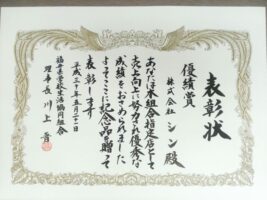 表彰状
優績賞
株式会社 シン殿
あなたは本組合指定店として
売上向上に努力され優秀な
成績をおさめられました
よってここに記念品を贈って
表彰します
平成三十年五月二十二日
福井県学校生活協同組合
理事長 川上晋